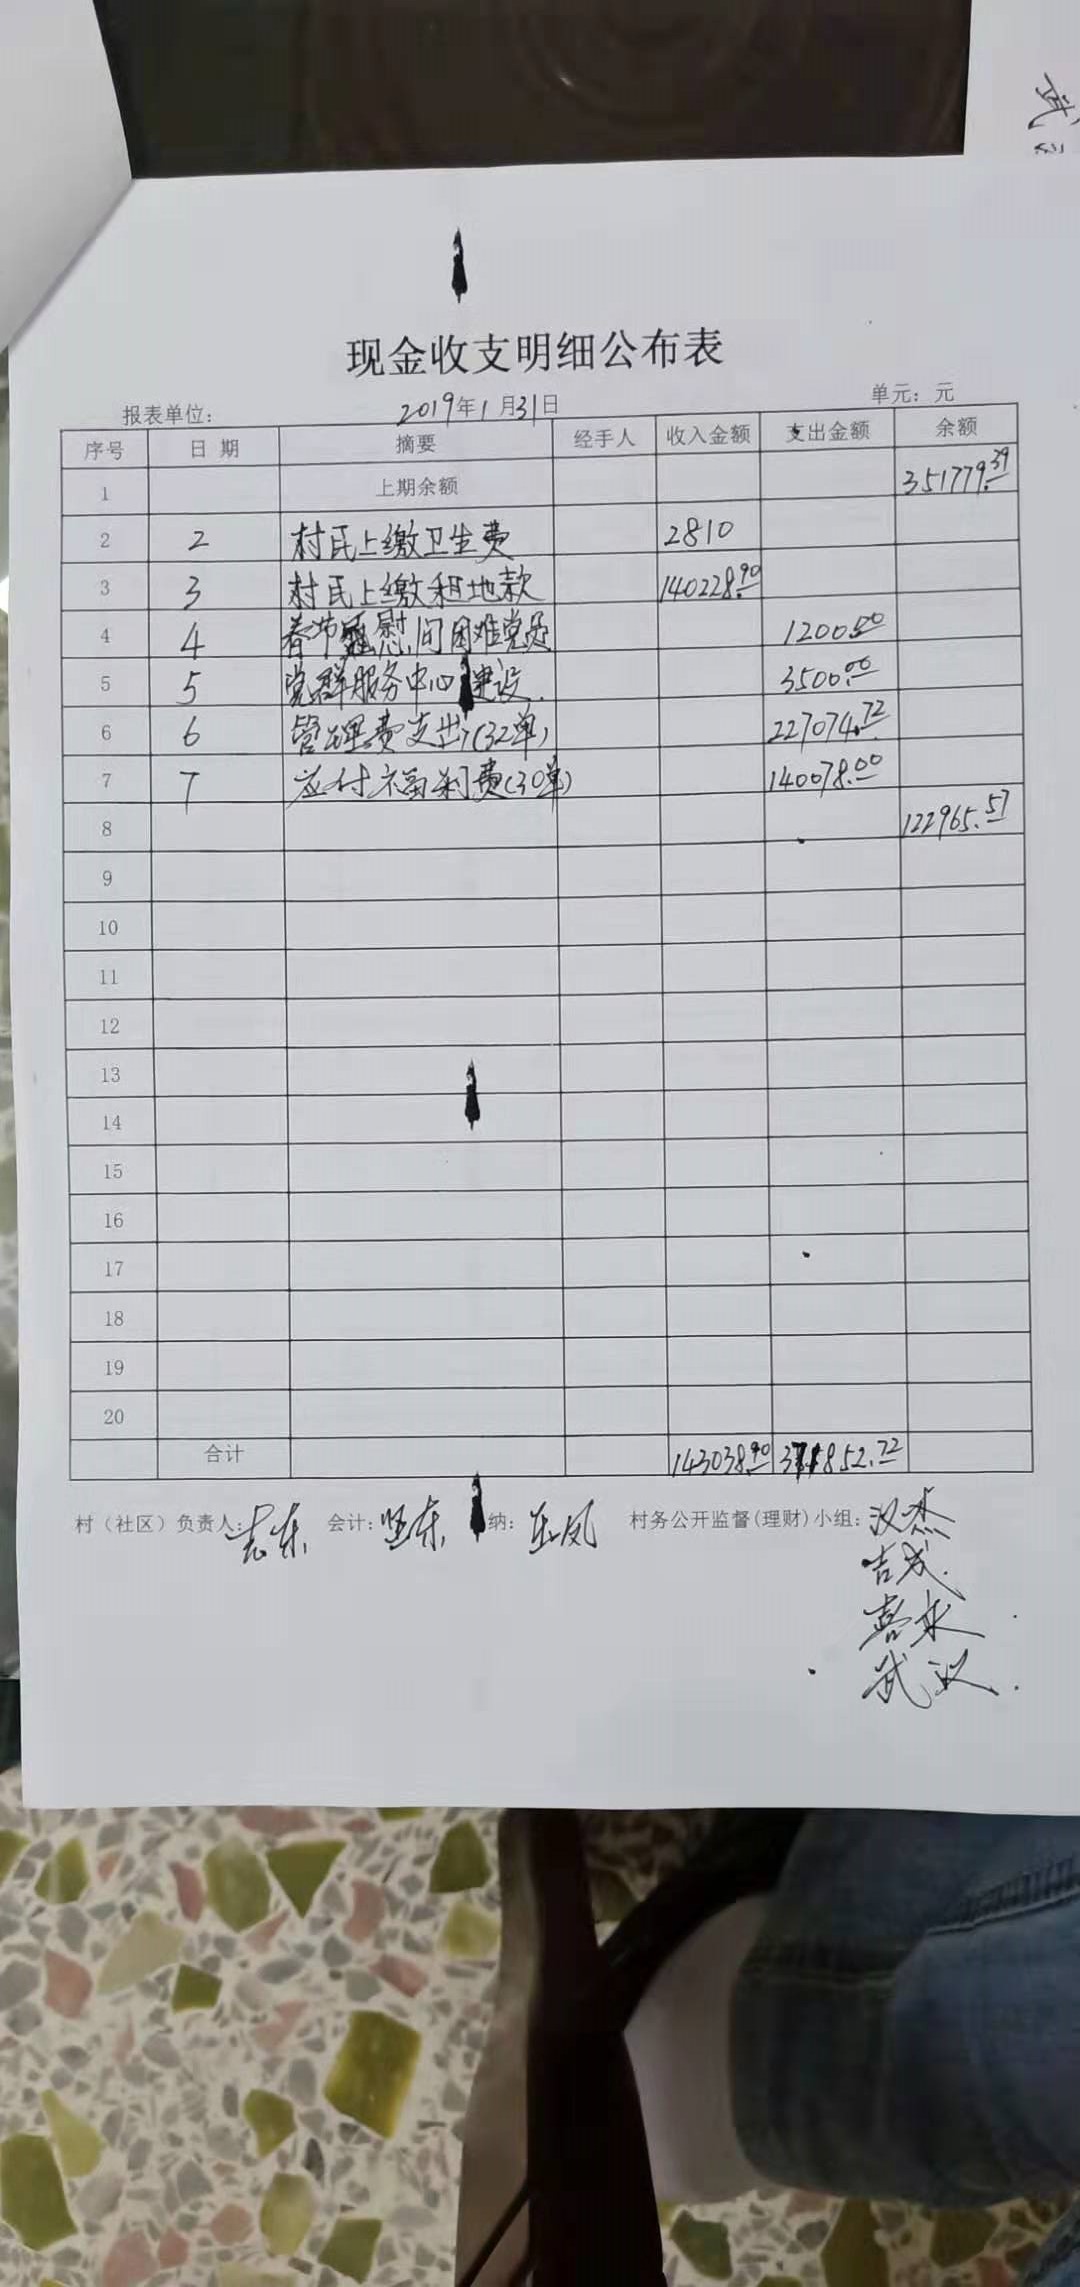 武汉
现金收支明细公布表
报表单位： 2019年1月31日 单元：元
序号 日期 摘要 经手人 收入金额 支出金额 余额
1 上期余额 351779.39
2 2 村民上缴卫生费 2810
3 3 村民上缴租地款 140228.90
4 4 春节慰问困难党员 1200.00
5 5 党群服务中心建设. 3500.00
6 6 管理费支出(32单) 227074.72
7 7 应付福利费(30单) 140078.00
8 122965.57
9
10
11
12
13
14
15
16
17
18
19
20
合计 143038.90 371852.72
村（社区）负责人： 会计：坚东 纳： 村务公开监督(理财)小组：汉杰
吉成
喜来
武汉